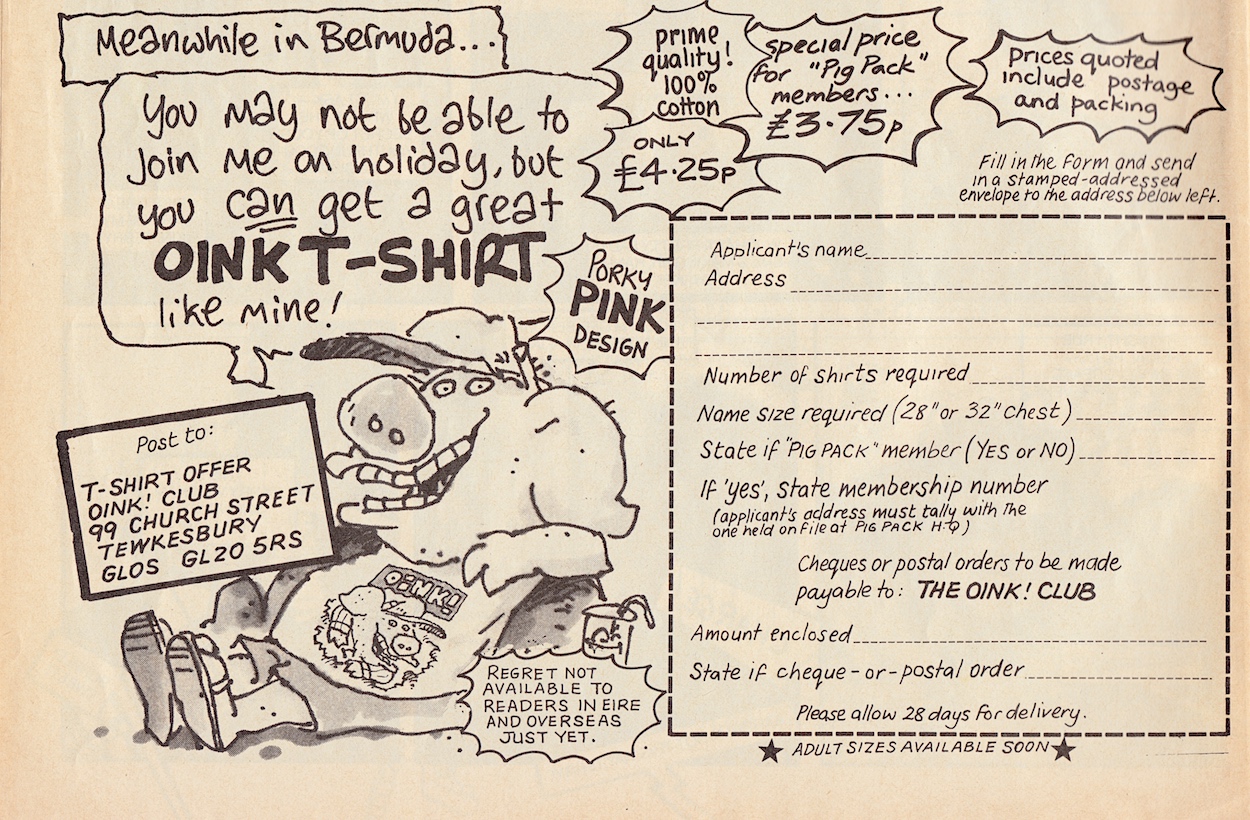 Meanwhile in Bermuda...
You may not be able to
join me on holiday, but
you can get a great
OINK T-SHIRT
like mine!
prime
quality!
100%
cotton
ONLY
£4.25p
special price
for "Pig Pack"
members...
£3.75p
Prices quoted
include postage
and packing
Fill in the form and send
in a stamped-addressed
envelope to the address below left.
PORKY
PINK
DESIGN
Post to:
T-SHIRT OFFER
OINK! CLUB
99 CHURCH STREET
TEWKESBURY
GLOS GL20 5RS
OINK!
REGRET NOT
AVAILABLE TO
READERS IN EIRE
AND OVERSEAS
JUST YET.
Applicant's name
Address
Number of shirts required
Name size required (28" or 32" chest)
State if "PIG PACK" member (YES or NO)
If 'yes', state membership number
(applicant's address must tally with the
one held on file at PIG PACK H.Q)
Cheques or postal orders to be made
payable to: THE OINK! CLUB
Amount enclosed
State if cheque-or-postal order
Please allow 28 days for delivery.
★ ADULT SIZES AVAILABLE SOON ★